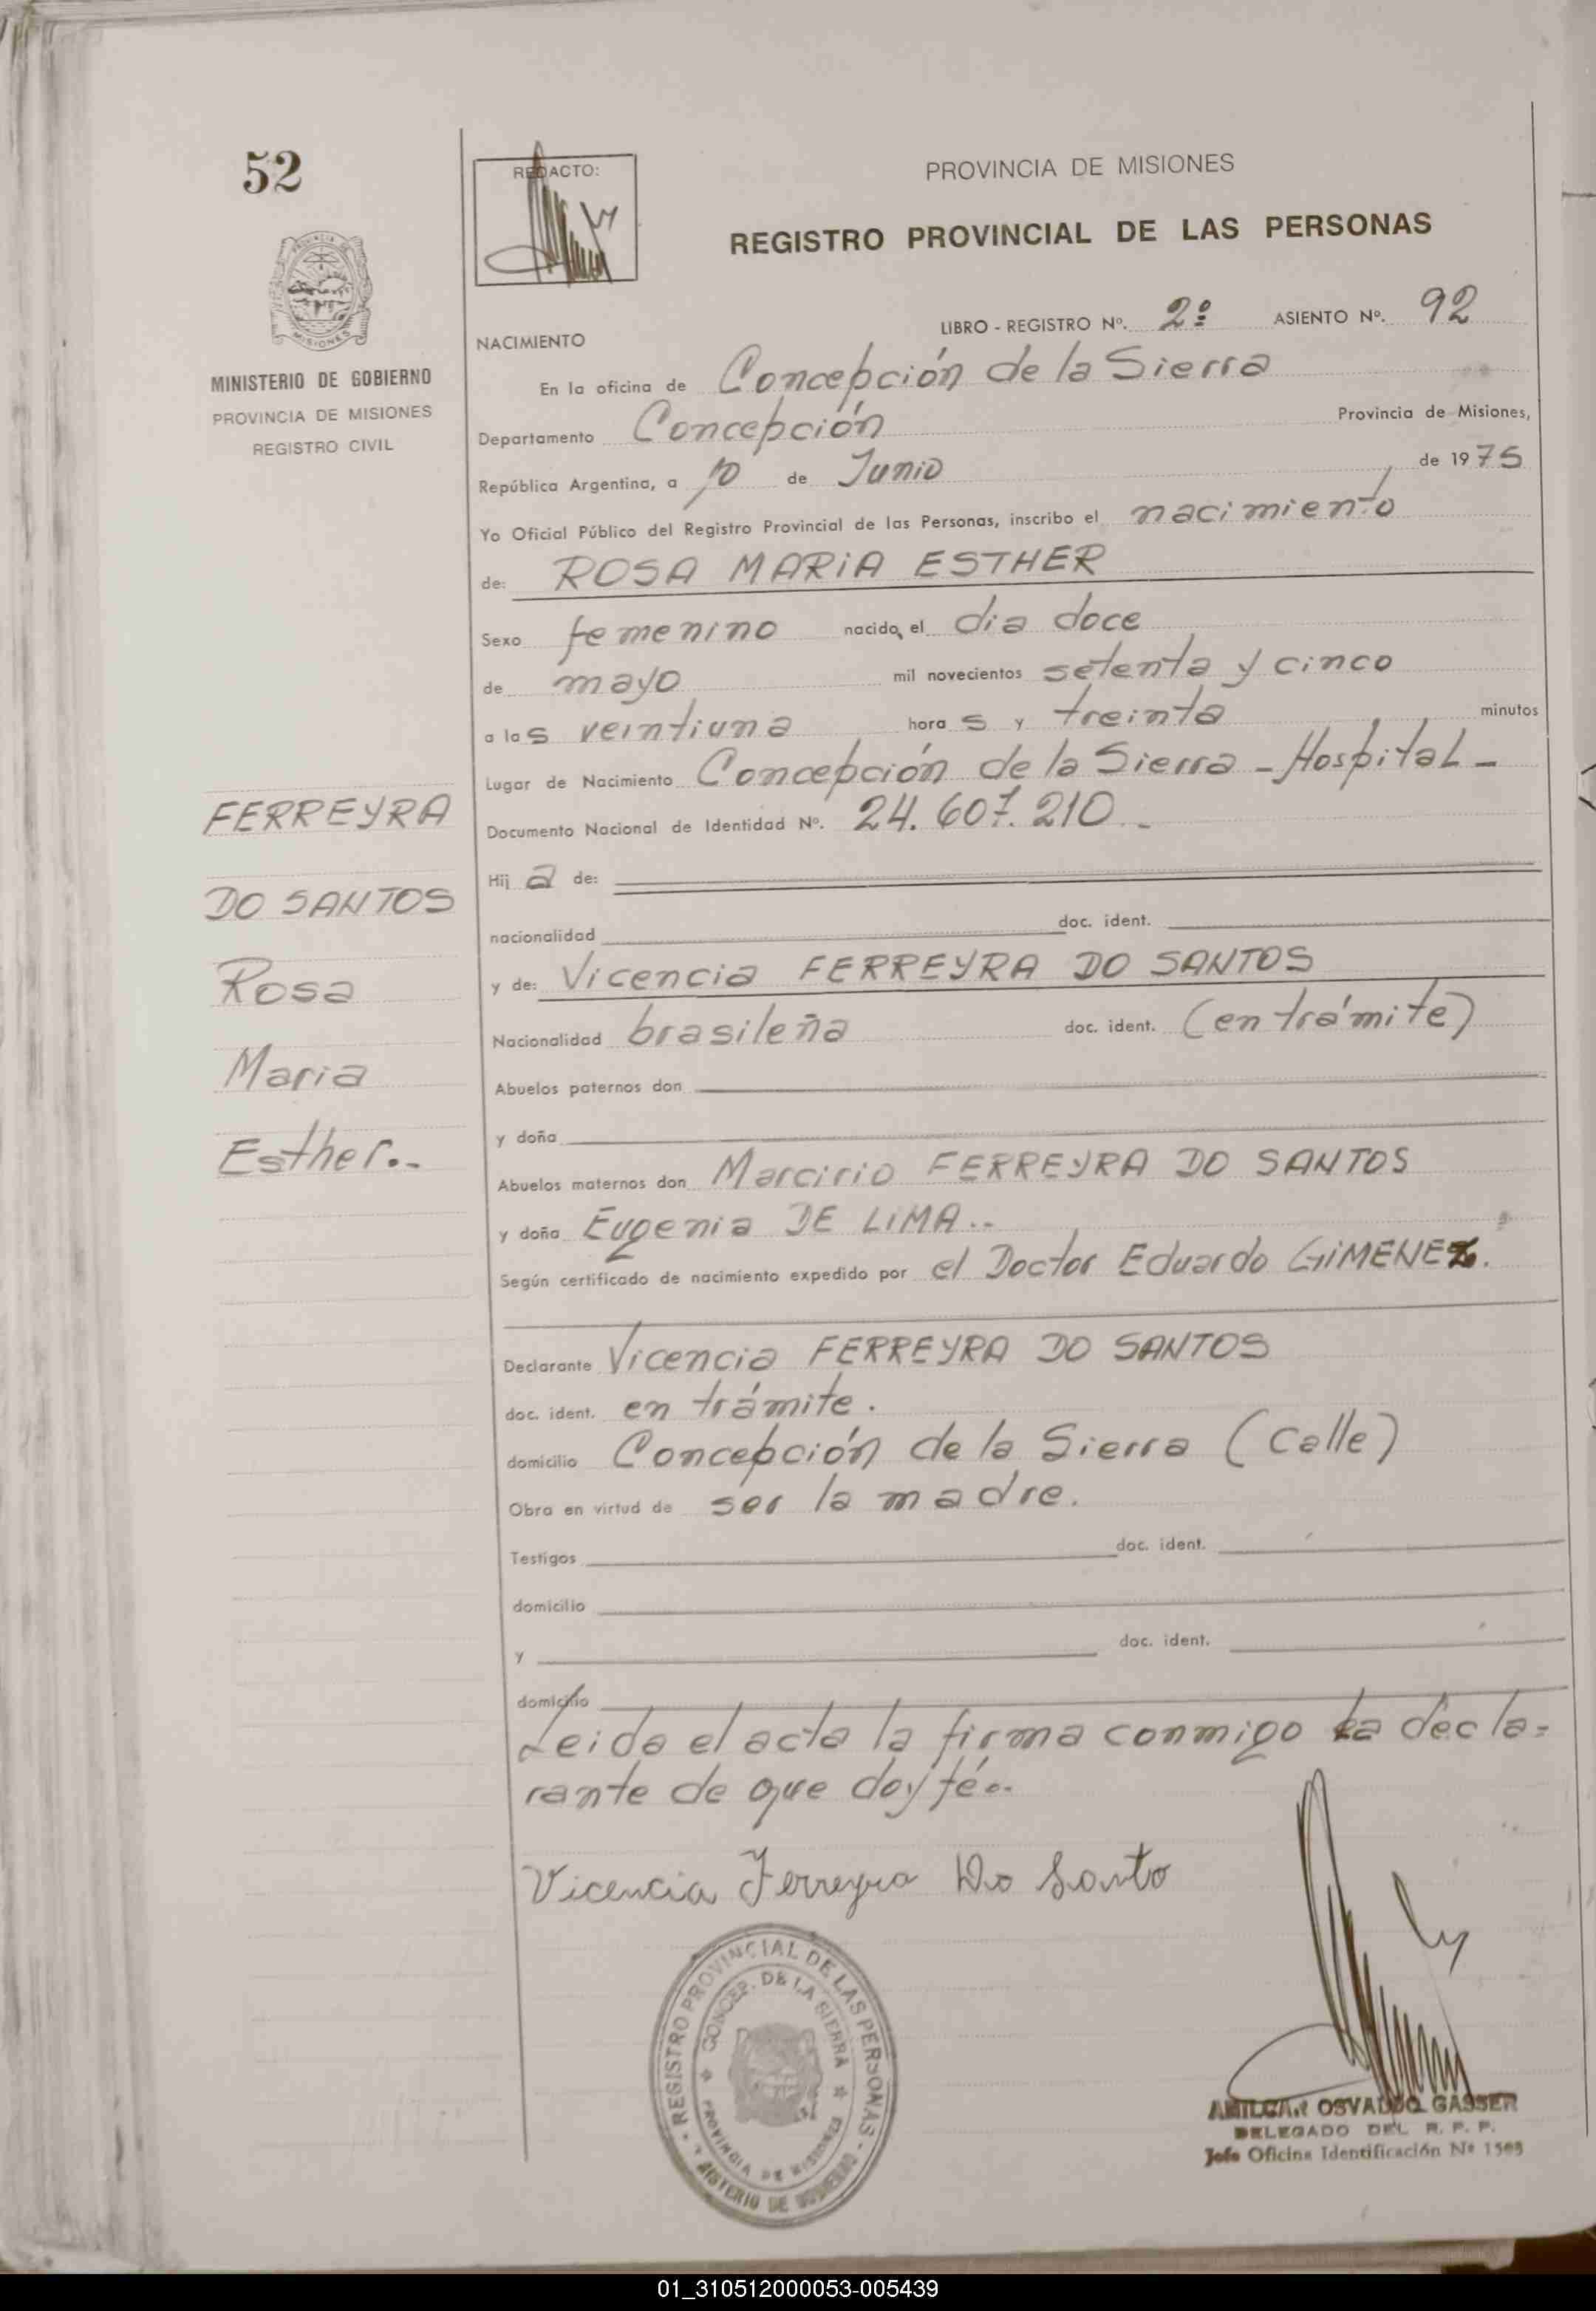 52
REDACTO:
PROVINCIA DE MISIONES
REGISTRO PROVINCIAL DE LAS PERSONAS
MINISTERIO DE GOBIERNO
PROVINCIA DE MISIONES
REGISTRO CIVIL
LIBRO - REGISTRO Nº. 2º ASIENTO Nº. 92
NACIMIENTO
En la oficina de Concepción de la Sierra
Departamento Concepción Provincia de Misiones,
República Argentina, a 10 de Junio de 1975
Yo Oficial Público del Registro Provincial de las Personas, inscribo el nacimiento
de: ROSA MARIA ESTHER
Sexo femenino nacido, el dia doce
de mayo mil novecientos setenta y cinco
a las veintiuna horas y treinta minutos
Lugar de Nacimiento Concepción de la Sierra - Hospital -
Documento Nacional de Identidad Nº. 24.607.210 -
Hija de:
nacionalidad doc. ident.
y de: Vicencia FERREYRA DO SANTOS
Nacionalidad brasileña doc. ident. (en trámite)
Abuelos paternos don
y doña
Abuelos maternos don Marcirio FERREYRA DO SANTOS
y doña Eugenia DE LIMA..
Según certificado de nacimiento expedido por el Doctor Eduardo GiMENEZ.
Declarante Vicencia FERREYRA DO SANTOS
doc. ident. en trámite.
domicilio Concepción de la Sierra (Calle)
Obra en virtud de ser la madre.
Testigos doc. ident.
domicilio
y doc. ident.
domicilio
Leida el acta la firma conmigo la decla-
rante de que doy fé..
FERREYRA
DO SANTOS
Rosa
Maria
Esther..
Vicencia Ferreyra Do Santo
REGISTRO PROVINCIAL DE LAS PERSONAS
CONCEP. DE LA SIERRA
PROVINCIA DE MISIONES
AMILCAR OSVALDO GASSER
DELEGADO DEL R. P. P.
Jefe Oficina Identificación Nº 1505
01_310512000053-005439